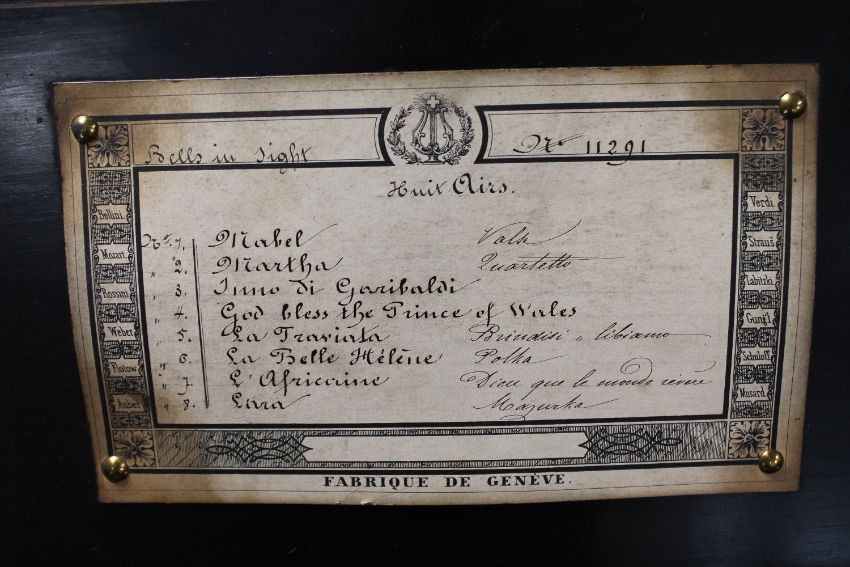 Bells in Sight
No 11291
Huit Airs.
Nos. 1. Mabel Valse
" 2. Martha Quartetto
" 3. Inno di Garibaldi
" 4. God bless the Prince of Wales
" 5. La Traviata Brindisi e libiamo
" 6. La Belle Hélène Polka
" 7. L'Africaine Dieu que le monde
" 8. Lara Mazurka
Bellini
Mozart
Rossini
Weber
Flotow
Auber
Verdi
Strauß
Labitzki
Gungl
Schuloff
Musard
FABRIQUE DE GENÈVE.